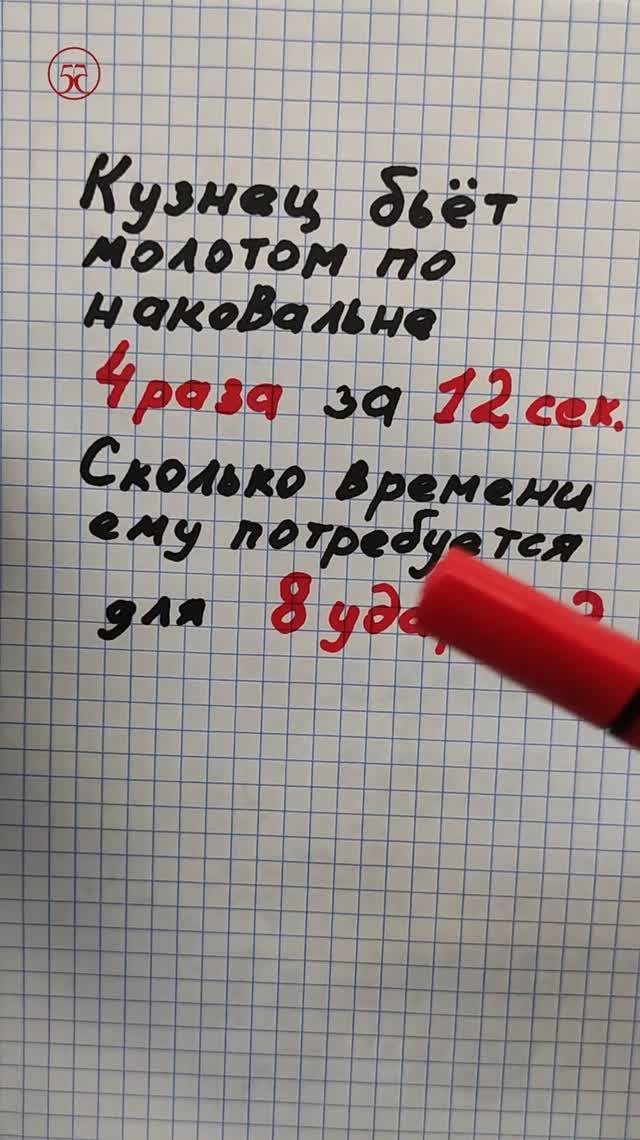 Кузнец бьёт
молотом по
наковальне
4 раза за 12 сек.
Сколько времени
ему потребуется
для 8